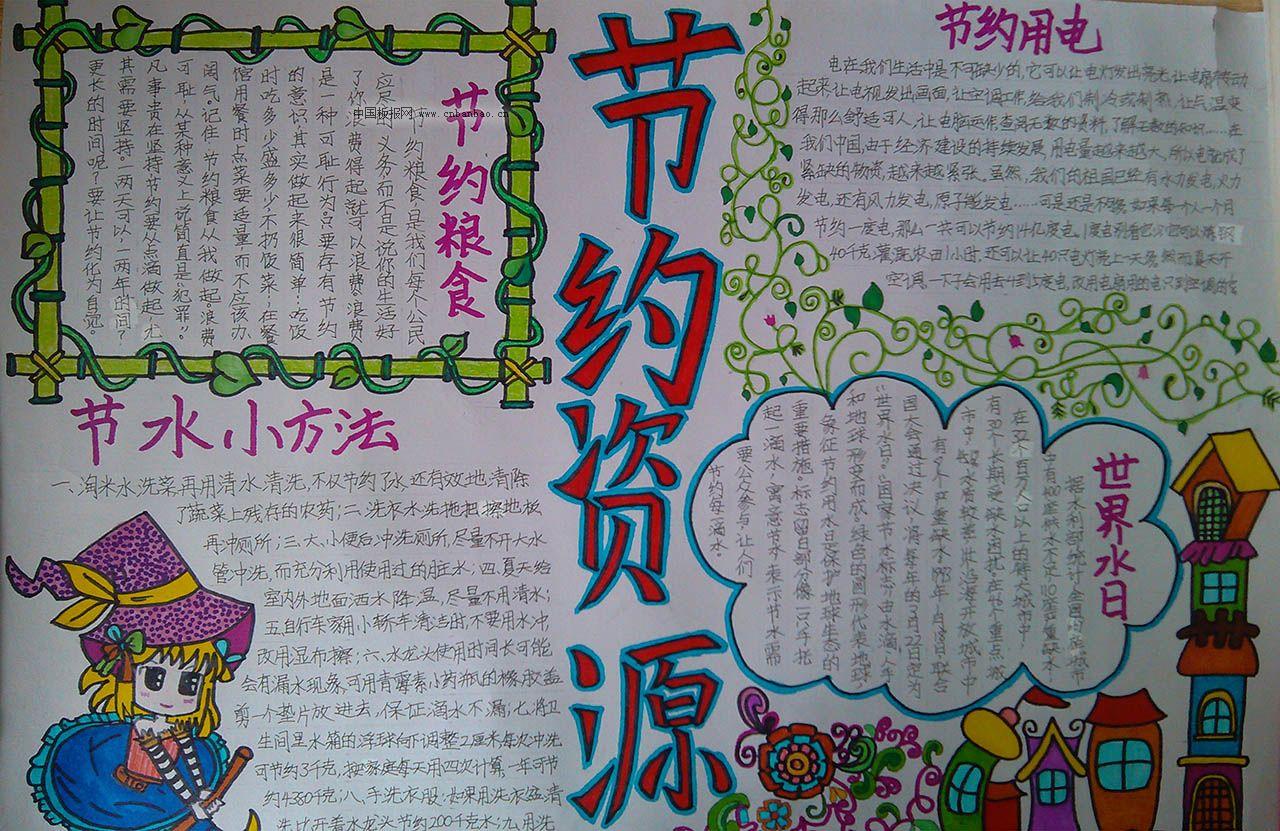 节约资源
节约粮食
节约粮食,是我们每个公民
应尽的义务,而不是说你的生活好
了,你浪费得起就可以浪费,浪费
是一种可耻行为。只要存有节约
的意识,其实做起来很简单:吃饭
时吃多少盛多少,不扔饭菜;在餐
馆用餐时点菜要适量,而不应该办
阔气。记住 节约粮食从我做起。浪费
可耻,从某种意义上说简直是“犯罪”。
凡事贵在坚持,节约要从点滴做起,尤
其需要坚持。一两天可以,一两年的时间?
更长的时间呢?要让节约化为自记。
中国板报网 www.cnbanbao.cn
节约用电
电在我们生活中是不可缺少的,它可以让电灯发出亮光,让电扇
起来,让电视发出画面,让空调工作,给我们制冷或制热,让气温变
得那么舒适可人,让电脑运作查得无数的资料,了解无数的知识……在
我们中国,由于经济建设的持续发展,用电量越来越大,所以电能成了
紧缺的物资,越来越紧张。虽然,我们的祖国已经有水力发电,火力
发电,还有风力发电,原子能发电……可是还是不够,如果每个人一个月
节约一度电,那么一共可以节约14亿度电。1度电别看它少它可以
40千克灌溉农田1小时,还可以让40只电灯亮上一天
空调,一下子会用去十到 度电,改用电扇用的电只到空调的
节水小方法
一、淘米水洗菜,再用清水清洗,不仅节约了水,还有效地清除
了蔬菜上残存的农药;二、洗衣水洗拖把、擦地板
再冲厕所;三、大、小便后冲洗厕所,尽量不开大水
管冲洗,而充分利用使用过的脏水;四、夏天给
室内外地面洒水降温,尽量不用清水;
五、自行车、家用小轿车清洁时,不要用水冲
改用湿布擦;六、水龙头使用时间长可能
会有漏水现象,可用青霉素小药瓶的橡胶盖
剪一个垫片放进去,保证滴水不漏;七、将卫
生间里水箱的浮球向下调整2厘米,每次冲洗
可节约3千克,按家庭每天用四次计算,一年可节
约4380千克;八、手洗衣服:如果用洗衣盆清
洗比开着水龙头节约200千克水;九、用洗
世界水日
据水利部统计,全国
中有400座城水不足,110座严重缺水,
在32个百万人口以上的特大城市中,
有30个长期受缺水困扰,在46个重点城
市中,45.6%水质较差,
有9个严重缺水。1993年1月18日,联合
国大会通过决议,将每年的3月22日定为
“世界水日”。“国家节水标志”由水滴、人手
和地球形变而成,绿色的圆形代表地球,
象征节约用水是保护地球生态的
重要措施。标志留白部分像一只手托
起一滴水,寓意节水,表示节水需
要公众参与,让人们
节约每一滴水。